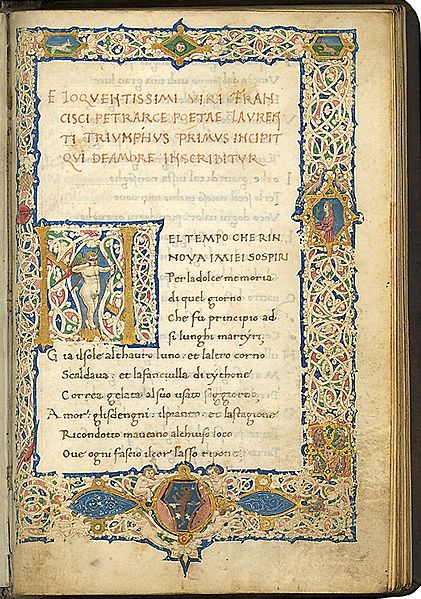 ELOQVENTISSIMI VIRI FRAN
CISCI PETRARCE POETAE LAVREN
TI TRIVMPHVS PRIMVS INCIPIT
QVI DEAMORE INSCRIBITVR
N EL TEMPO CHE RIN
NOVA IMIEI SOSPIRI
Perla dolce memoria
di quel giorno
Che fu principio ad
si lunghi martyri,
Gia ilsole althauro luno: et laltro corno
Scaldaua: et lafanciulla di tythone
Correa gelata alsuo usato soggiorno,
Amor: glisdengni: ilpianto: et lastagione
Ricondotto maueano alchiuso loco
Oue ogni fascio ilcor lasso ripone: